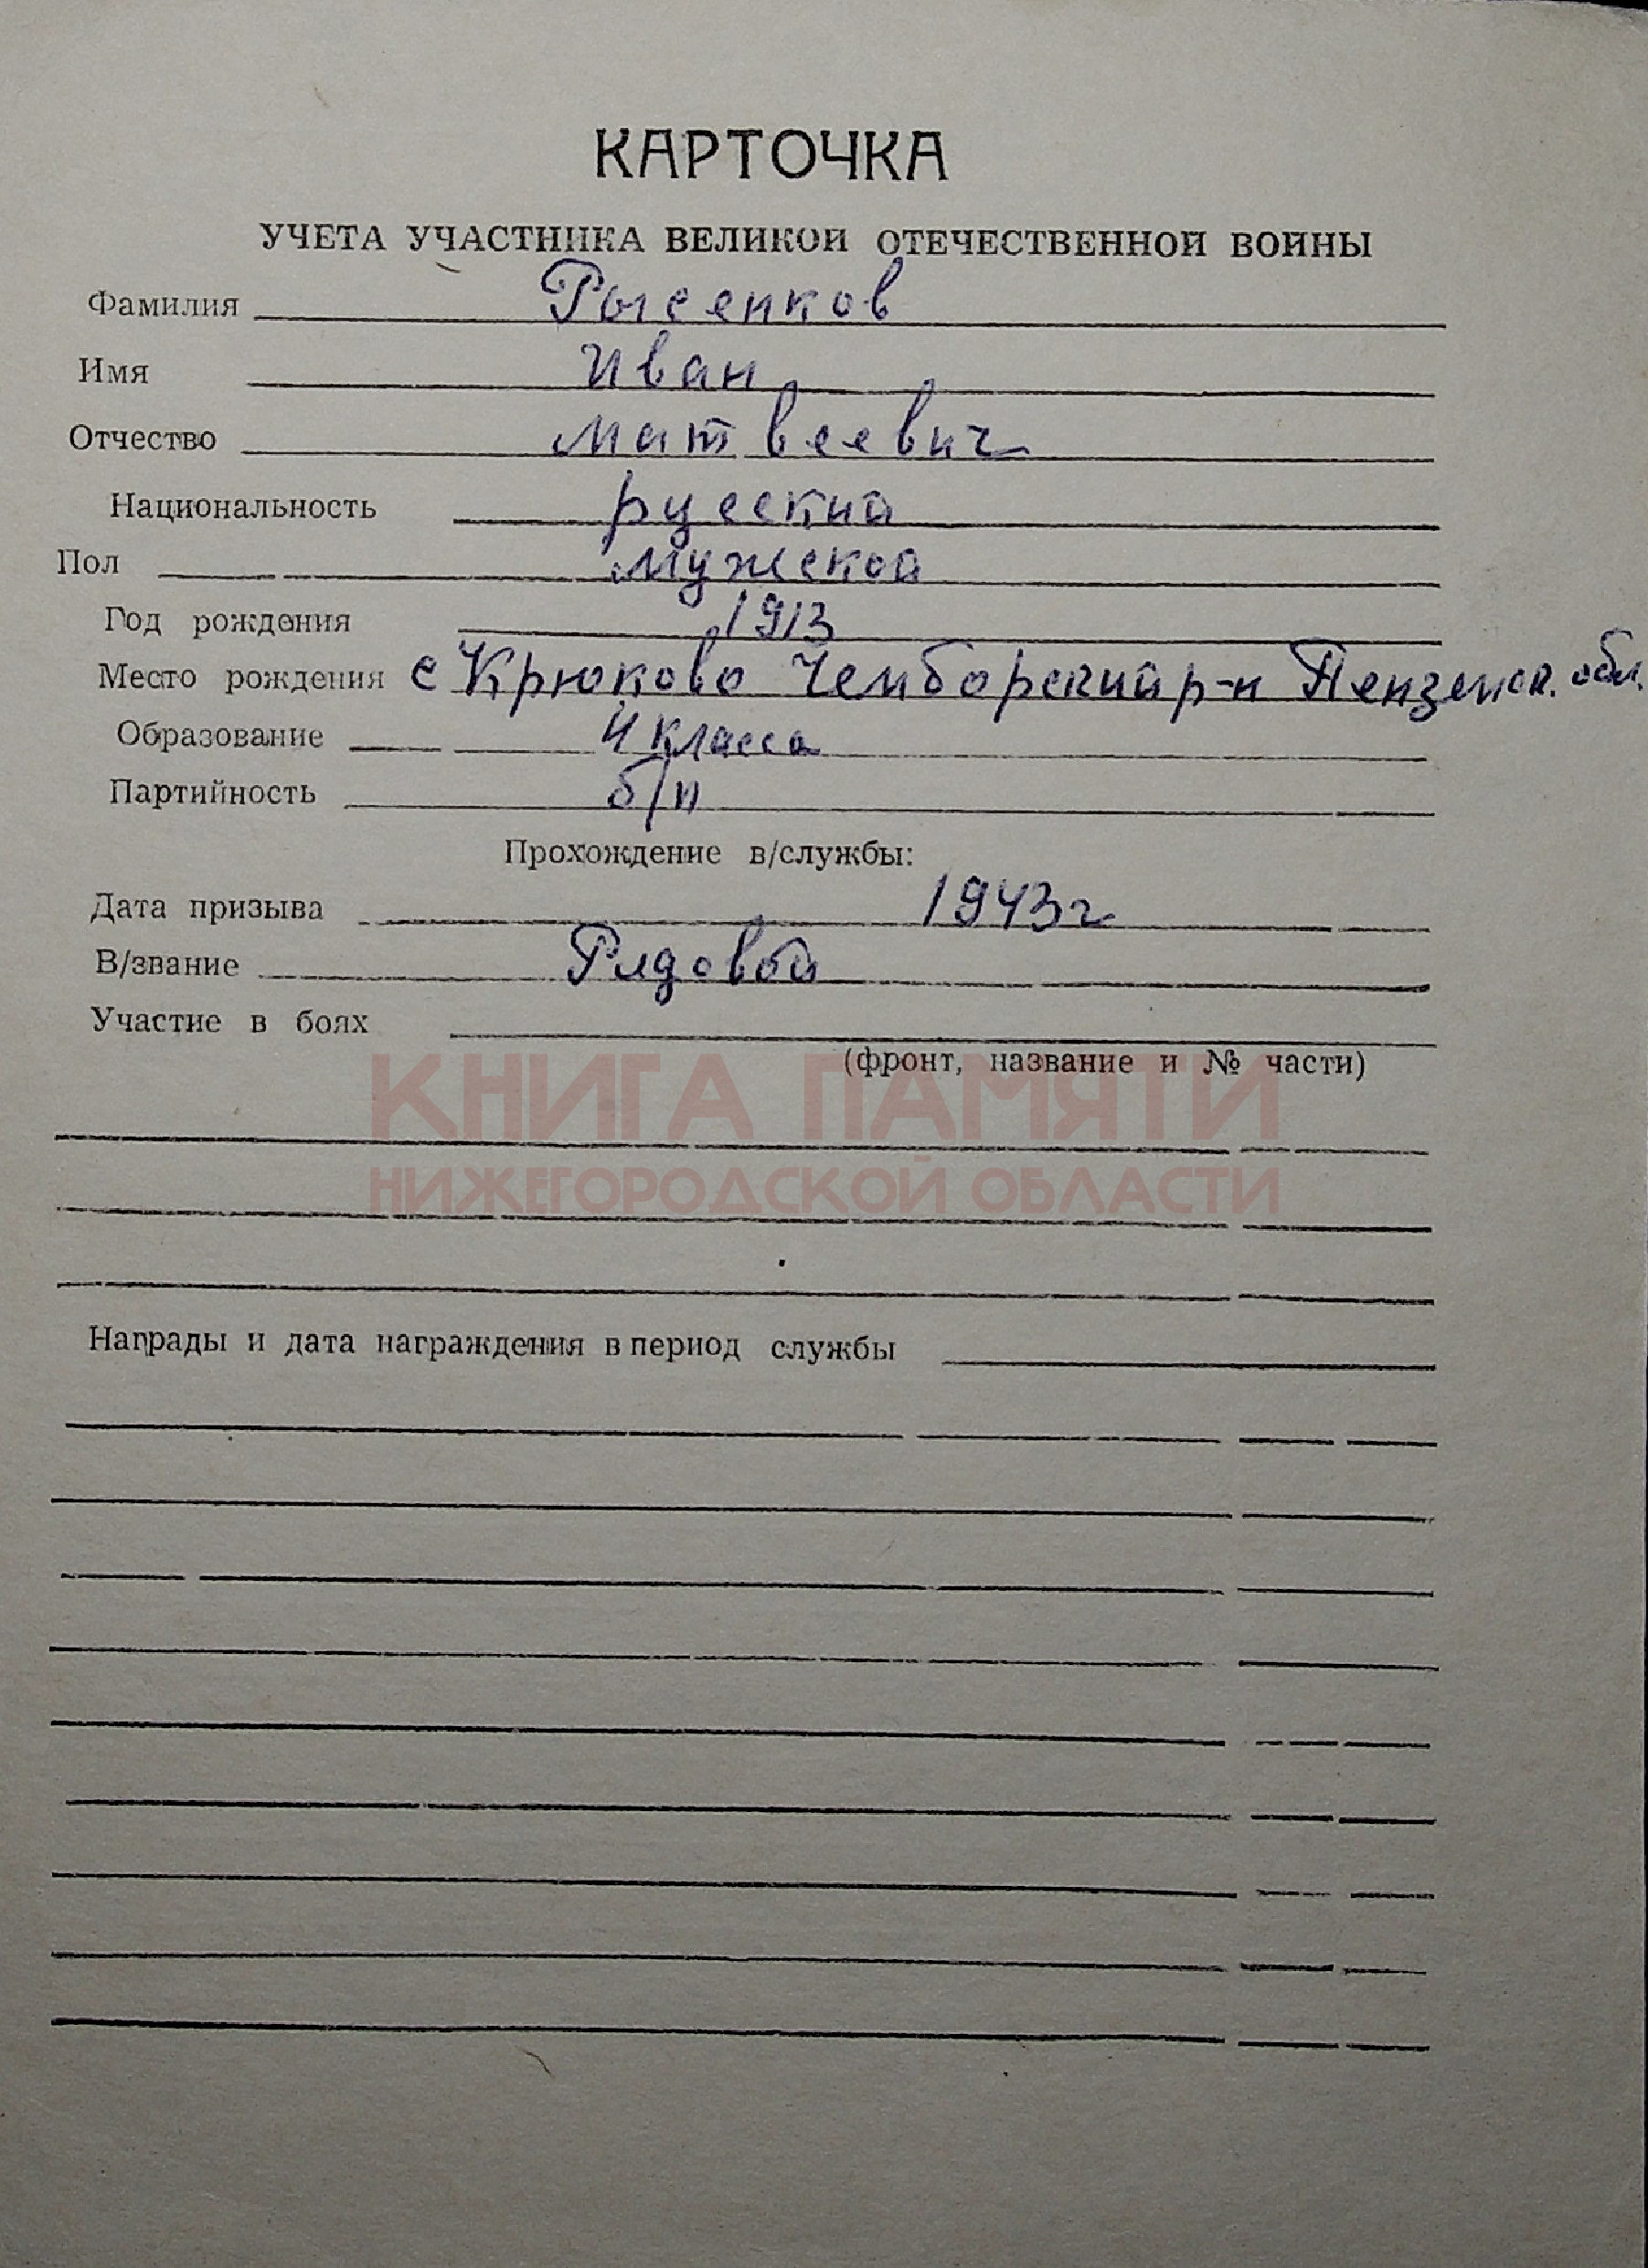 КАРТОЧКА
УЧЕТА УЧАСТНИКА ВЕЛИКОЙ ОТЕЧЕСТВЕННОЙ ВОЙНЫ
Фамилия Рысенков
Имя Иван
Отчество Матвеевич
Национальность русский
Пол мужской
Год рождения 1913
Место рождения с Крюково Чемборский р-н Пензенск. обл.
Образование 4 класса
Партийность б/п
Прохождение в/службы:
Дата призыва 1943г
В/звание Рядовой
Участие в боях
(фронт, название и № части)
КНИГА ПАМЯТИ
НИЖЕГОРОДСКОЙ ОБЛАСТИ
Награды и дата награждения в период службы